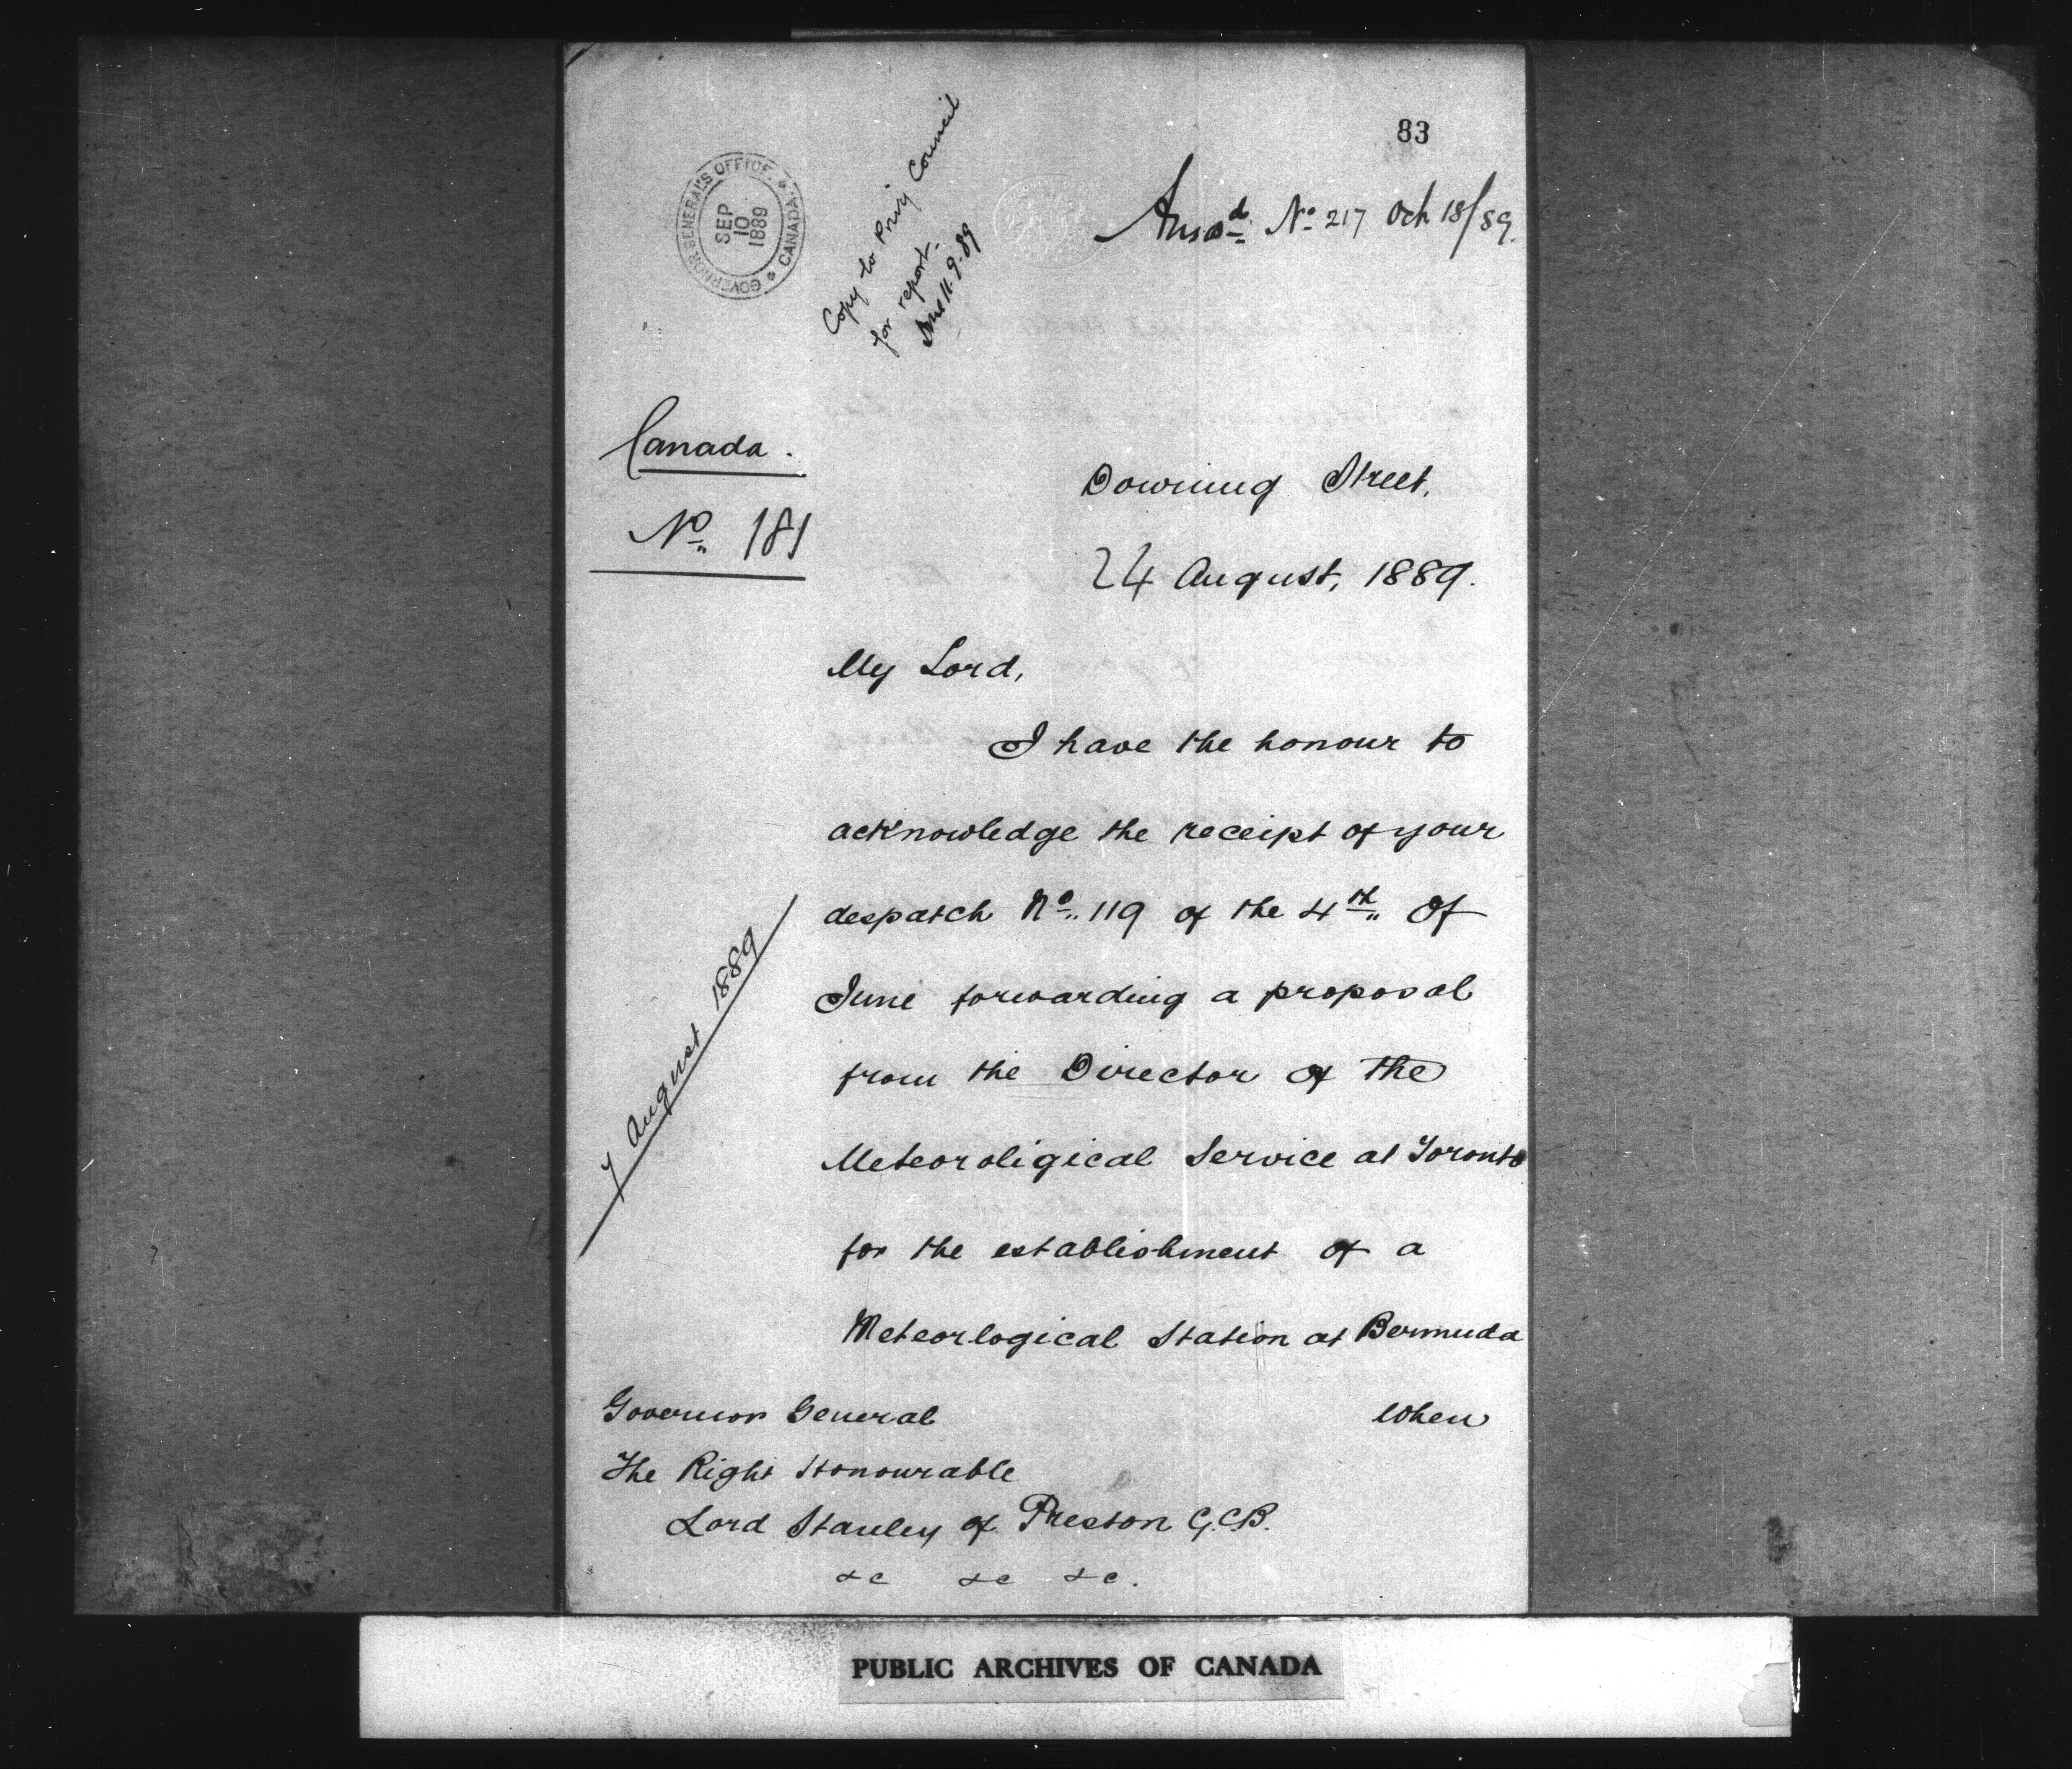 83
GOVERNOR GENERAL'S OFFICE
CANADA
SEP
10
1889
Copy to Privy Council
for report.
11.9.89
Ansd. No. 217 Oct 18/89.
Canada.
No. 181
Downing Street,
24 August, 1889.
My Lord,
I have the honour to
acknowledge the receipt of your
despatch No. 119 of the 4th of
June forwarding a proposal
from the Director of the
Meteoroligical Service at Toronto
for the establishment of a
Meteorlogical Station at Bermuda
7 August 1889
when
Governor General
The Right Honourable
Lord Stanley of Preston G.C.B.
&c &c &c.
PUBLIC ARCHIVES OF CANADA